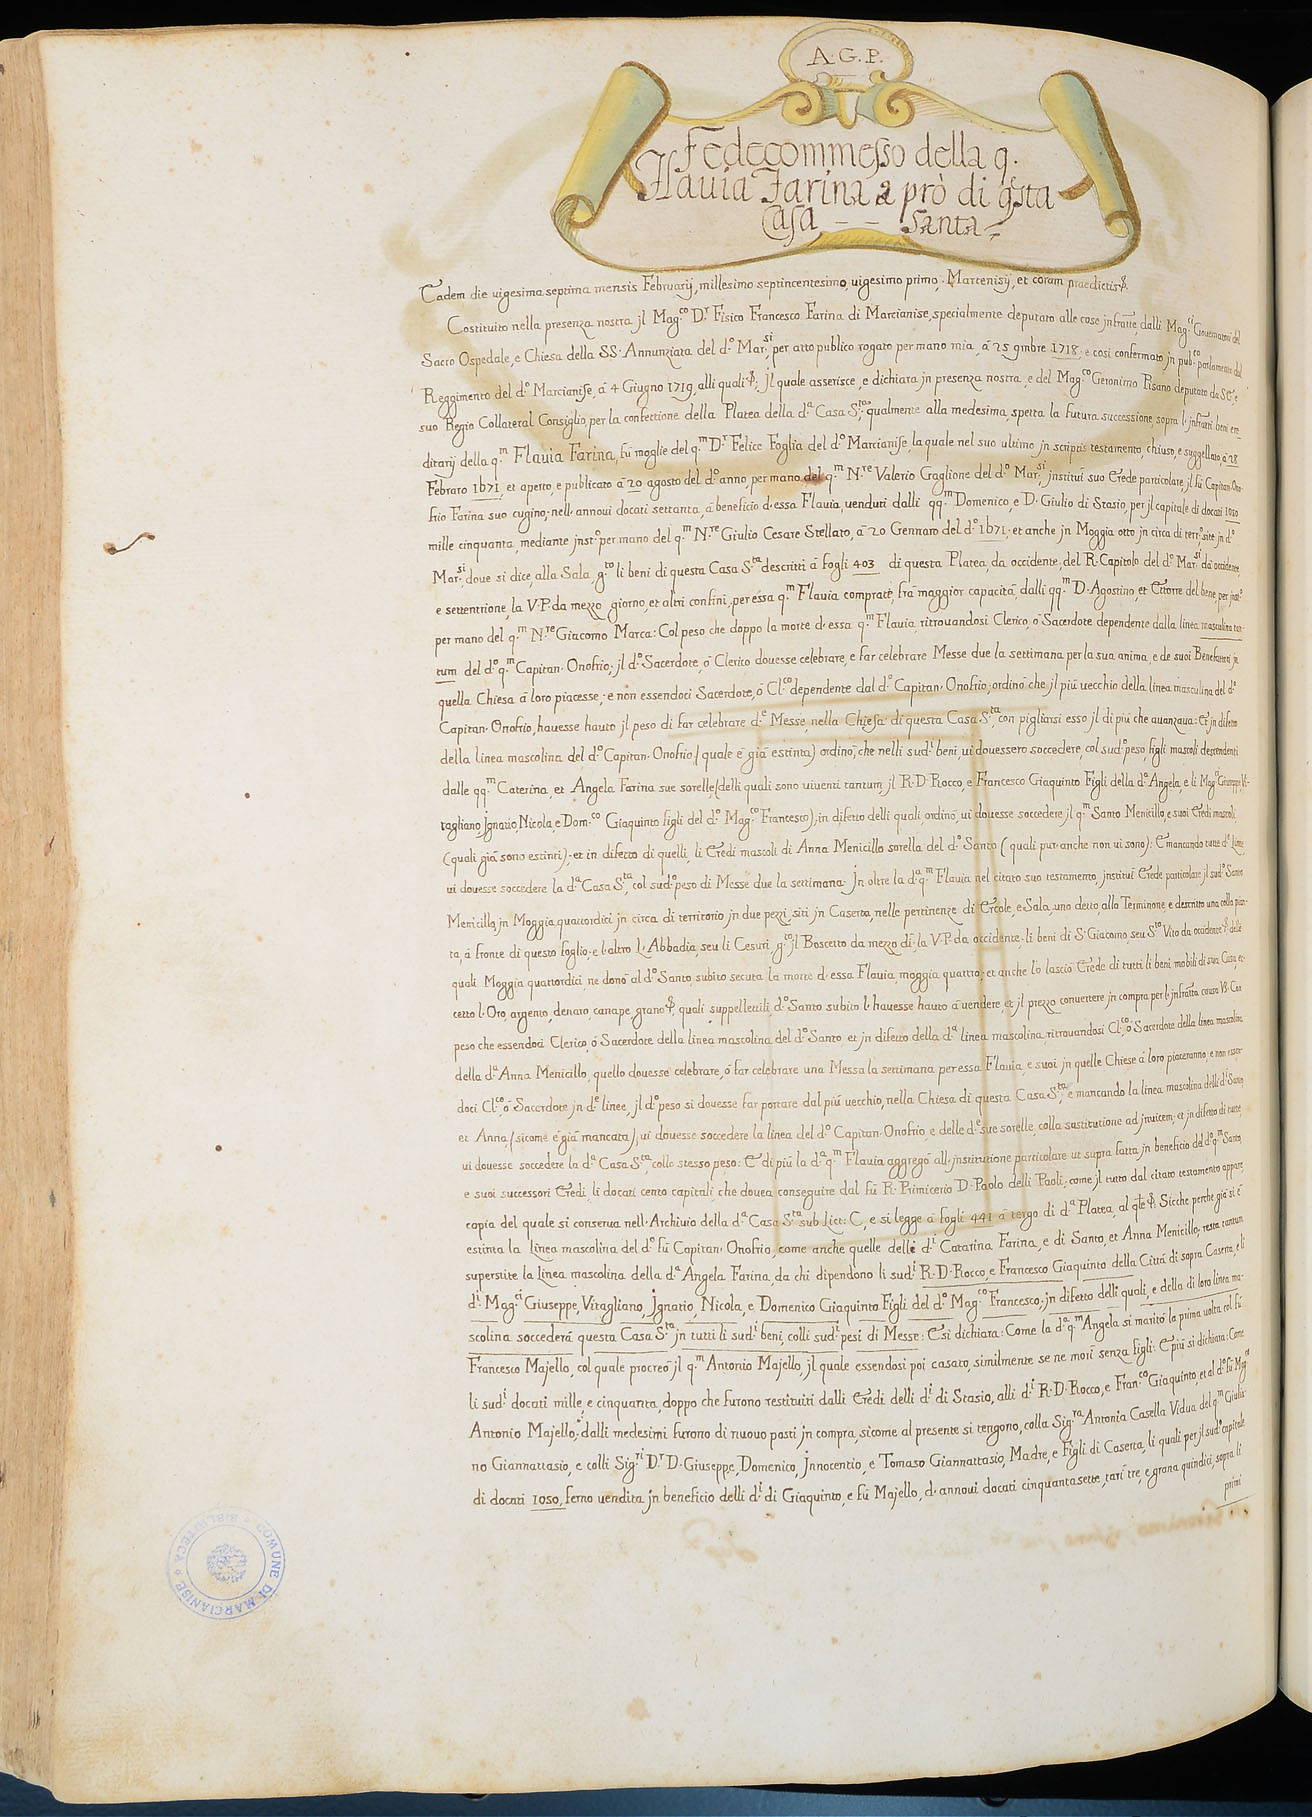 A. G. P.
Fedecommesso della q.
Flauia Farina à prò di q.sta
Casa - - Santa -
Eadem die uigesima septima mensis Februarij, millesimo septincentesimo, uigesimo primo, Marcenisij, et coram praedictis
Costituito nella presenza nostra jl Mag.co D.r Fisico Francesco Farina di Marcianise, specialmente deputato alle cose jnfratte, dalli Mag.ci Gouernatori del
Sacro Ospedale, e Chiesa della SS. Annunziata del d.o Mar.si, per atto publico rogato per mano mia, à 25 9mbre 1718, e così confermato jn pub.co parlamento del
Reggimento del d.o Marcianise, à 4 Giugno 1719, alli quali; jl quale asserisce, e dichiara jn presenza nostra, e del Mag.co Geronimo Pisano deputato da S.E., e
suo Regio Collateral Consiglio, per la confettione della Platea della d.a Casa S.ta, qualmente alla medesima, spetta la futura successione, sopra l'jnfratti beni ere-
ditarij della q.m Flauia Farina, fù moglie del q.m D.r Felice Foglia del d.o Marcianise, la quale nel suo ultimo jn scriptis testamento, chiuso, e suggellato, à 28
Febraro 1671, et aperto, e publicato à 20 agosto del d.o anno, per mano del q.m N.re Valerio Gaglione del d.o Mar.si, jnstituì suo Erede particolare, jl fù Capitan Ono-
frio Farina suo cugino, nell'annoui docati settanta, à beneficio d'essa Flauia, uenduti dalli qq.m Domenico, e D. Giulio di Stasio, per jl capitale di docati 1050
mille cinquanta, mediante jnst.o per mano del q.m N.re Giulio Cesare Stellato, à 20 Gennaro del d.o 1671; et anche jn Moggia otto jn circa di terr.o, site jn d.o
Mar.si, doue si dice, alla Sala, g.to li beni di questa Casa S.ta descritti à fogli 403 di questa Platea, da occidente, del R. Capitolo del d.o Mar.si da occidente,
e settentrione, la V.P. da mezzo giorno, et altri confini, per essa q.m Flauia comprate, frà maggior capacità, dalli qq.m D. Agostino, et Ettorre del bene, per jnst.o
per mano del q.m N.re Giacomo Marca: Col peso che doppo la morte d'essa q.m Flauia, ritrouandosi Clerico, ò Sacerdote dependente dalla linea mascolina tan-
tum del d.o q.m Capitan Onofrio; jl d.o Sacerdote, ò Clerico douesse celebrare, e far celebrare Messe due la settimana per la sua anima, e de suoi Benefattori jn
quella Chiesa à loro piacesse; e non essendoci Sacerdote, ò Cl.co dependente dal d.o Capitan Onofrio, ordinò che jl più uecchio della linea mascolina del d.o
Capitan Onofrio, hauesse hauto jl peso di far celebrare d.e Messe, nella Chiesa di questa Casa S.ta, con pigliarsi esso jl di più che auanzaua: Et jn difetto
della linea mascolina del d.o Capitan Onofrio (quale è già estinta) ordinò, che nelli sud.i beni, ui douessero soccedere, col sud.o peso, figli mascoli descendenti
dalle qq.m Caterina, et Angela Farina sue sorelle, (delli quali sono uiuenti tantum, jl R. D. Rocco, e Francesco Giaquinto Figli della d.a Angela, e li Mag.ci Giuseppe, Vi-
tagliano, Jgnatio, Nicola, e Dom.co Giaquinto figli del d.o Mag.co Francesco); in difetto delli quali, ordinò, ui douesse soccedere jl q.m Santo Menicillo, e suoi Eredi mascoli,
(quali già sono estinti); et in difetto di quelli, li Eredi mascoli di Anna Menicillo sorella del d.o Santo (quali pur anche non ui sono): E mancando tutte d.e Linee
ui douesse soccedere la d.a Casa S.ta, col sud.o peso di Messe due la settimana. Jn oltre la d.a q.m Flauia nel citato suo testamento, jnstituì Erede particolare jl sud.o Santo
Menicillo, jn Moggia quattordici jn circa di territorio jn due pezzi, siti jn Caserta, nelle pertinenze di Ercole, e Sala, uno detto, allo Terminone, e descritto una colla pian-
ta, à fronte di questo foglio; e l'altro l'Abbadia, seu li Cesuri, g.to jl Boschetto da mezzo dì, la V.P. da occidente, li beni di S. Giacomo, seu S.to Vito da occidente, delle
quali Moggia quattordici, ne donò al d.o Santo, subito secuta la morte d'essa Flauia, moggia quattro; et anche lo lasciò Erede di tutti li beni mobili di sua Casa, ec-
cetto l'Oro, argento, denaro, canape, grano, quali suppellettili, d.o Santo subito l'hauesse hauto à uendere, et jl prezzo conuertere jn compra per l'jnfratta causa V3: Con
peso che essendoci Clerico, ò Sacerdote della linea mascolina del d.o Santo, et jn difetto della d.a linea mascolina, ritrouandosi Cl.co, ò Sacerdote della linea mascolina
della d.a Anna Menicillo, quello douesse celebrare, ò far celebrare una Messa la settimana per essa Flauia, e suoi jn quelle Chiese à loro piaceranno; e non essen-
doci Cl.co, ò Sacerdote jn d.e linee, jl d.o peso si douesse far portare dal più uecchio, nella Chiesa di questa Casa S.ta, e mancando la linea mascolina delli d.i Santo
et Anna, (sicome è già mancata), ui douesse soccedere la linea del d.o Capitan Onofrio, e delle d.e sue sorelle, colla sustitutione ad jnuicem; et jn difetto di tutte,
ui douesse soccedere la d.a Casa S.ta, collo stesso peso: E di più la d.a q.m Flauia aggregò all'jnstitutione particolare ut supra fatta jn beneficio del d.o q.m Santo,
e suoi successori Eredi, li docati cento capitali, che douea conseguire dal fù R. Primicerio D. Paolo delli Paoli; come jl tutto dal citato testamento appare,
copia del quale si conserua nell'Archiuio della d.a Casa S.ta sub Litt: C, e si legge à fogli 441 à tergo di d.a Platea, al q.le. Sicche perche già si è
estinta la linea mascolina del d.o fù Capitan Onofrio, come anche quelle delli d.i Catarina Farina, e di Santo, et Anna Menicillo; resta tantum
superstite la Linea mascolina della d.a Angela Farina, da chi dipendono li sud.i R. D. Rocco, e Francesco Giaquinto della Città di sopra Caserta, e li
d.i Mag.ci Giuseppe, Vitagliano, Jgnatio, Nicola, e Domenico Giaquinto Figli del d.o Mag.co Francesco; jn difetto delli quali, e della di loro linea ma-
scolina soccederà questa Casa S.ta, jn tutti li sud.i beni, colli sud.i pesi di Messe: E si dichiara: Come la d.a q.m Angela si maritò la prima uolta col fù
Francesco Majello, col quale procreò jl q.m Antonio Majello, jl quale essendosi poi casato, similmente se ne morì senza figli: E più si dichiara: Come
li sud.i docati mille, e cinquanta, doppo che furono restituiti dalli Eredi delli d.i di Stasio, alli d.i R. D. Rocco, e Fran.co Giaquinto, et al d.o fù Mag.co
Antonio Majello; dalli medesimi furono di nuouo posti jn compra, sicome al presente si tengono, colla Sig.ra Antonia Casella Vidua del q.m Giulia-
no Giannattasio, e colli Sig.ri D.r D. Giuseppe, Domenico, Jnnocentio, e Tomaso Giannattasio, Madre, e Figli di Caserta, li quali per jl sud.o capitale
di docati 1050, ferno uendita jn beneficio delli d.i di Giaquinto, e fù Majello, d'annoui docati cinquantasette, tarì tre, e grana quindici, sopra li
primi
COMUNE DI MARCIANISE
BIBLIOTECA